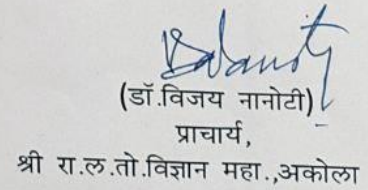 (डॉ.विजय नानोटी)
प्राचार्य,
श्री रा.ल.तो.विज्ञान महा.,अकोला